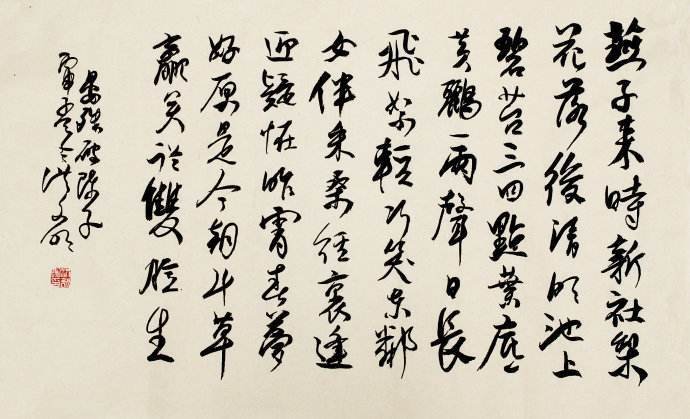 燕子來時新社梨
花落後清明池上
碧苔三四點葉底
黃鸝一兩聲日長
飛絮輕巧笑東鄰
女伴采桑徑裏逢
迎疑怪昨宵春夢
好原是今朝斗草
贏笑從雙臉生
晏殊破陣子